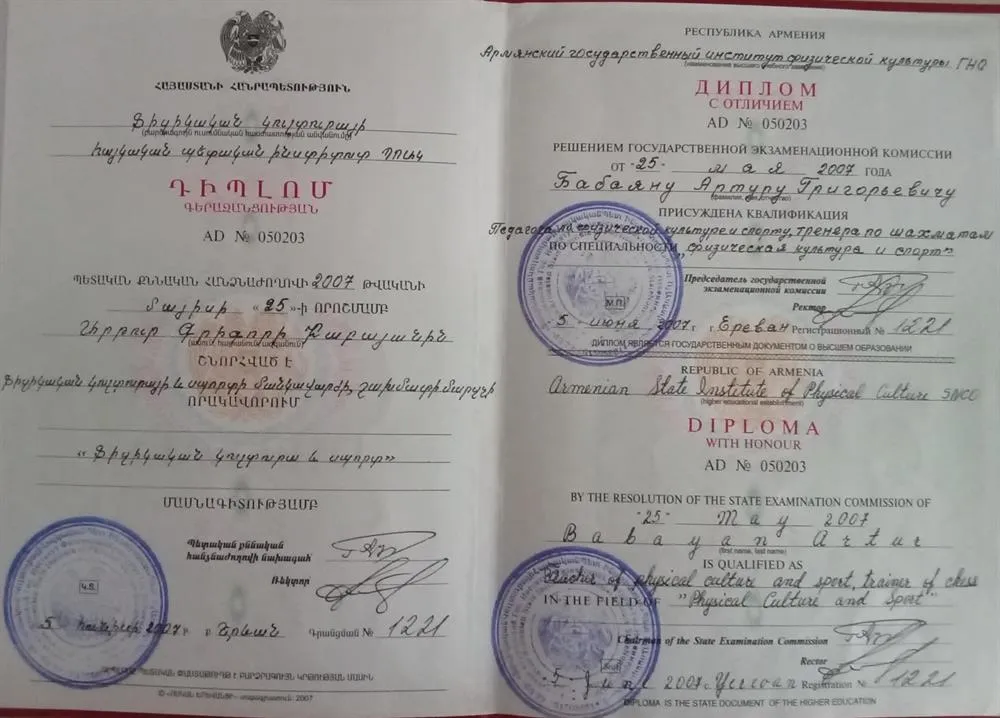 ՀԱՅԱՍՏԱՆԻ ՀԱՆՐԱՊԵՏՈՒԹՅՈՒՆ
Ֆիզիկական կուլտուրայի
(բարձրագույն ուսումնական հաստատության անվանումը)
հայկական պետական ինստիտուտ ՊՈԱԿ
ԴԻՊԼՈՄ
ԳԵՐԱԶԱՆՑՈՒԹՅԱՆ
AD № 050203
ՊԵՏԱԿԱՆ ՔՆՆԱԿԱՆ ՀԱՆՁՆԱԺՈՂՈՎԻ 2007 ԹՎԱԿԱՆԻ
մայիսի «25»-Ի ՈՐՈՇՄԱՄԲ
Արթուր Գրիգորի Բաբայանին
(անուն, հայրանուն, ազգանուն)
ՇՆՈՐՀՎԱԾ Է
Ֆիզիկական կուլտուրայի և սպորտի մանկավարժի, շախմատի մարզչի
ՈՐԱԿԱՎՈՐՈՒՄ
«Ֆիզիկական կուլտուրա և սպորտ»
ՄԱՍՆԱԳԻՏՈՒԹՅԱՄԲ
Պետական քննական
հանձնաժողովի նախագահ
Ռեկտոր
Կ.Տ.
5 հունիսի 2007թ. ք. Երևան Գրանցման № 1221
ԴԻՊԼՈՄԸ ՊԵՏԱԿԱՆ ՓԱՍՏԱԹՈՒՂԹ Է ԲԱՐՁՐԱԳՈՒՅՆ ԿՐԹՈՒԹՅԱՆ ՄԱՍԻՆ
2007
РЕСПУБЛИКА АРМЕНИЯ
Армянский государственный институт физической культуры ГНО
(наименование высшего учебного заведения)
ДИПЛОМ
С ОТЛИЧИЕМ
AD № 050203
РЕШЕНИЕМ ГОСУДАРСТВЕННОЙ ЭКЗАМЕНАЦИОННОЙ КОМИССИИ
ОТ "25" мая 2007 ГОДА
Бабаяну Артуру Григорьевичу
(фамилия, имя, отчество)
ПРИСУЖДЕНА КВАЛИФИКАЦИЯ
Педагога по физической культуре и спорту, тренера по шахматам
ПО СПЕЦИАЛЬНОСТИ „физическая культура и спорт"
Председатель государственной
экзаменационной комиссии
Ректор
М.П.
5 июня 2007г. г. Ереван Регистрационный № 1221
ДИПЛОМ ЯВЛЯЕТСЯ ГОСУДАРСТВЕННЫМ ДОКУМЕНТОМ О ВЫСШЕМ ОБРАЗОВАНИИ
REPUBLIC OF ARMENIA
Armenian State Institute of Physical Culture SNCO
(higher educational establishment)
DIPLOMA
WITH HONOUR
AD № 050203
BY THE RESOLUTION OF THE STATE EXAMINATION COMMISSION OF
"25" May 2007
Babayan Artur
(first name, last name)
IS QUALIFIED AS
Teacher of physical culture and sport, trainer of chess
IN THE FIELD OF "Physical Culture and Sport"
Chairman of the State Examination Commission
Rector
5 June 2007 c. Yerevan Registration № 1221
DIPLOMA IS THE STATE DOCUMENT OF THE HIGHER EDUCATION